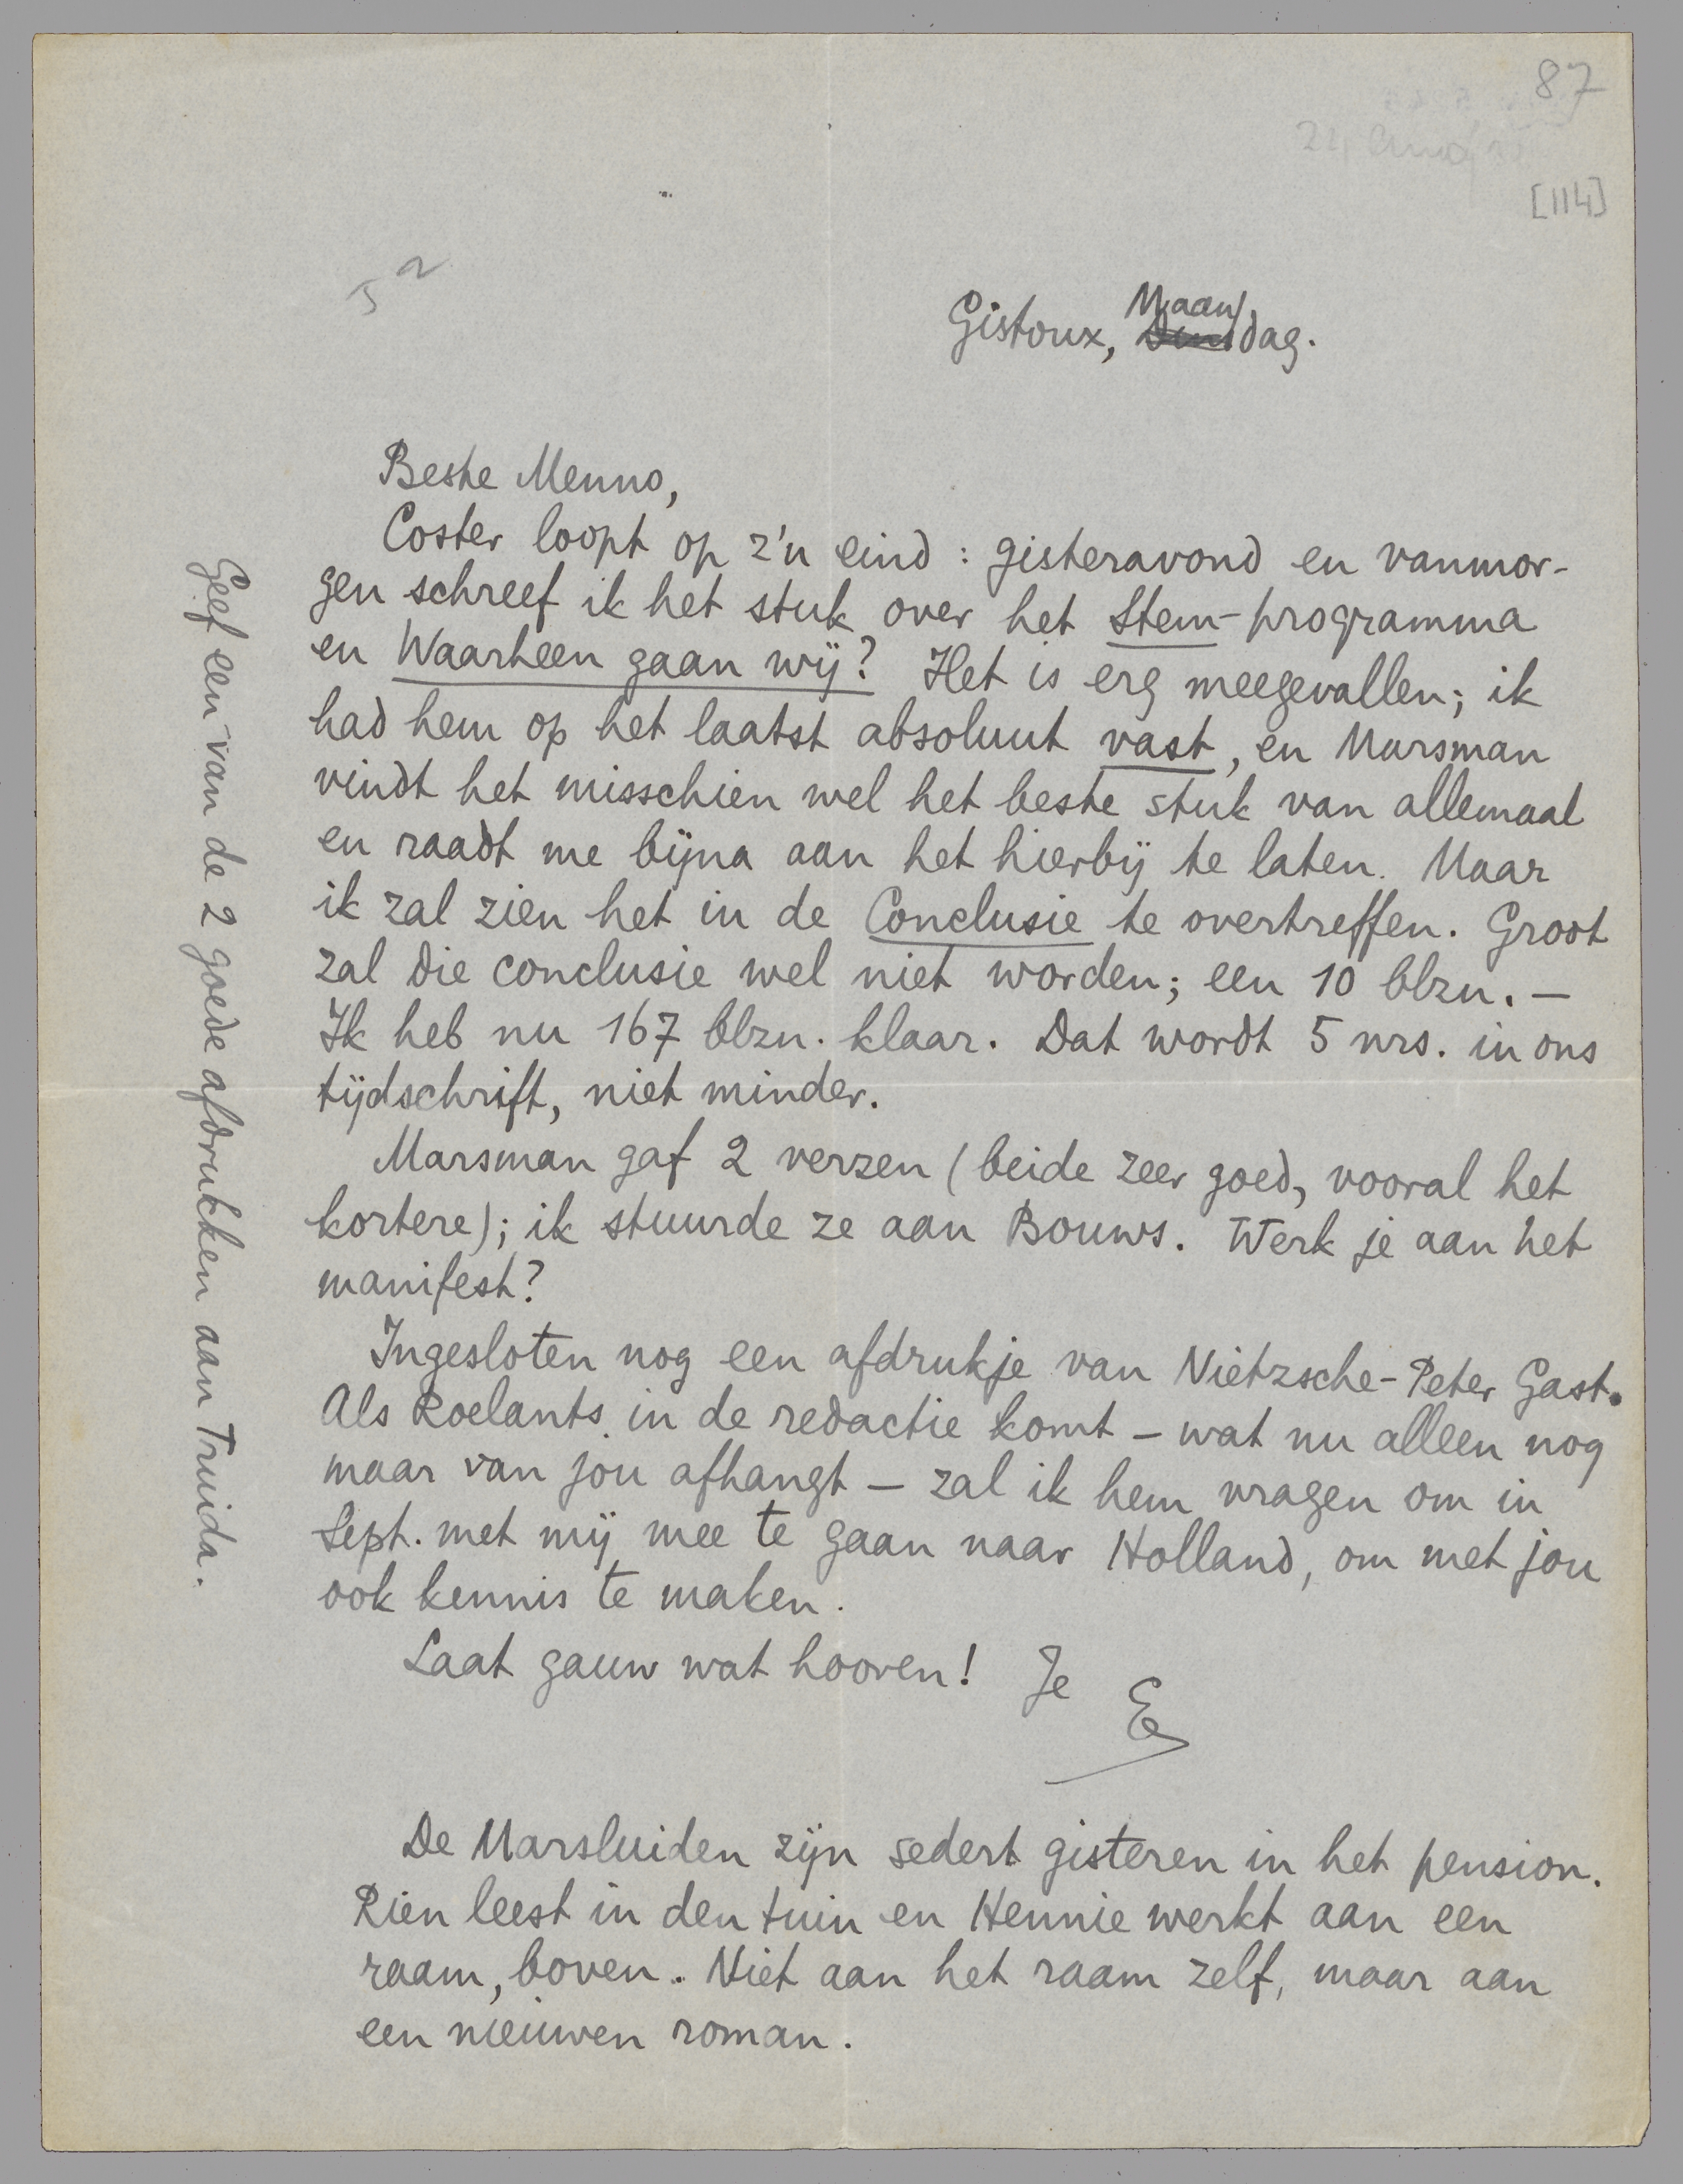 87
[114]
Gistoux, Maandag.
Beste Menno,
Coster loopt op z'n eind : gisteravond en vanmor-
gen schreef ik het stuk over het Stem-programma
en Waarheen gaan wij? Het is erg meegevallen; ik
had hem op het laatst absoluut vast, en Marsman
vindt het misschien wel het beste stuk van allemaal
en raadt me bijna aan het hierbij te laten. Maar
ik zal zien het in de Conclusie te overtreffen. Groot
zal die conclusie wel niet worden; een 10 blzn. —
Ik heb nu 167 blzn. klaar. Dat wordt 5 nrs. in ons
tijdschrift, niet minder.
Marsman gaf 2 verzen (beide zeer goed, vooral het
kortere); ik stuurde ze aan Bouws. Werk je aan het
manifest?
Ingesloten nog een afdrukje van Nietzsche-Peter Gast.
Als Roelants in de redactie komt – wat nu alleen nog
maar van jou afhangt – zal ik hem vragen om in
Sept. met mij mee te gaan naar Holland, om met jou
ook kennis te maken.
Laat gauw wat hooren! Je E
De Marsluiden zijn sedert gisteren in het pension.
Rien leest in den tuin en Hennie werkt aan een
raam, boven. Niet aan het raam zelf, maar aan
een nieuwen roman.
Geef een van de 2 goede afdrukken aan Truida.